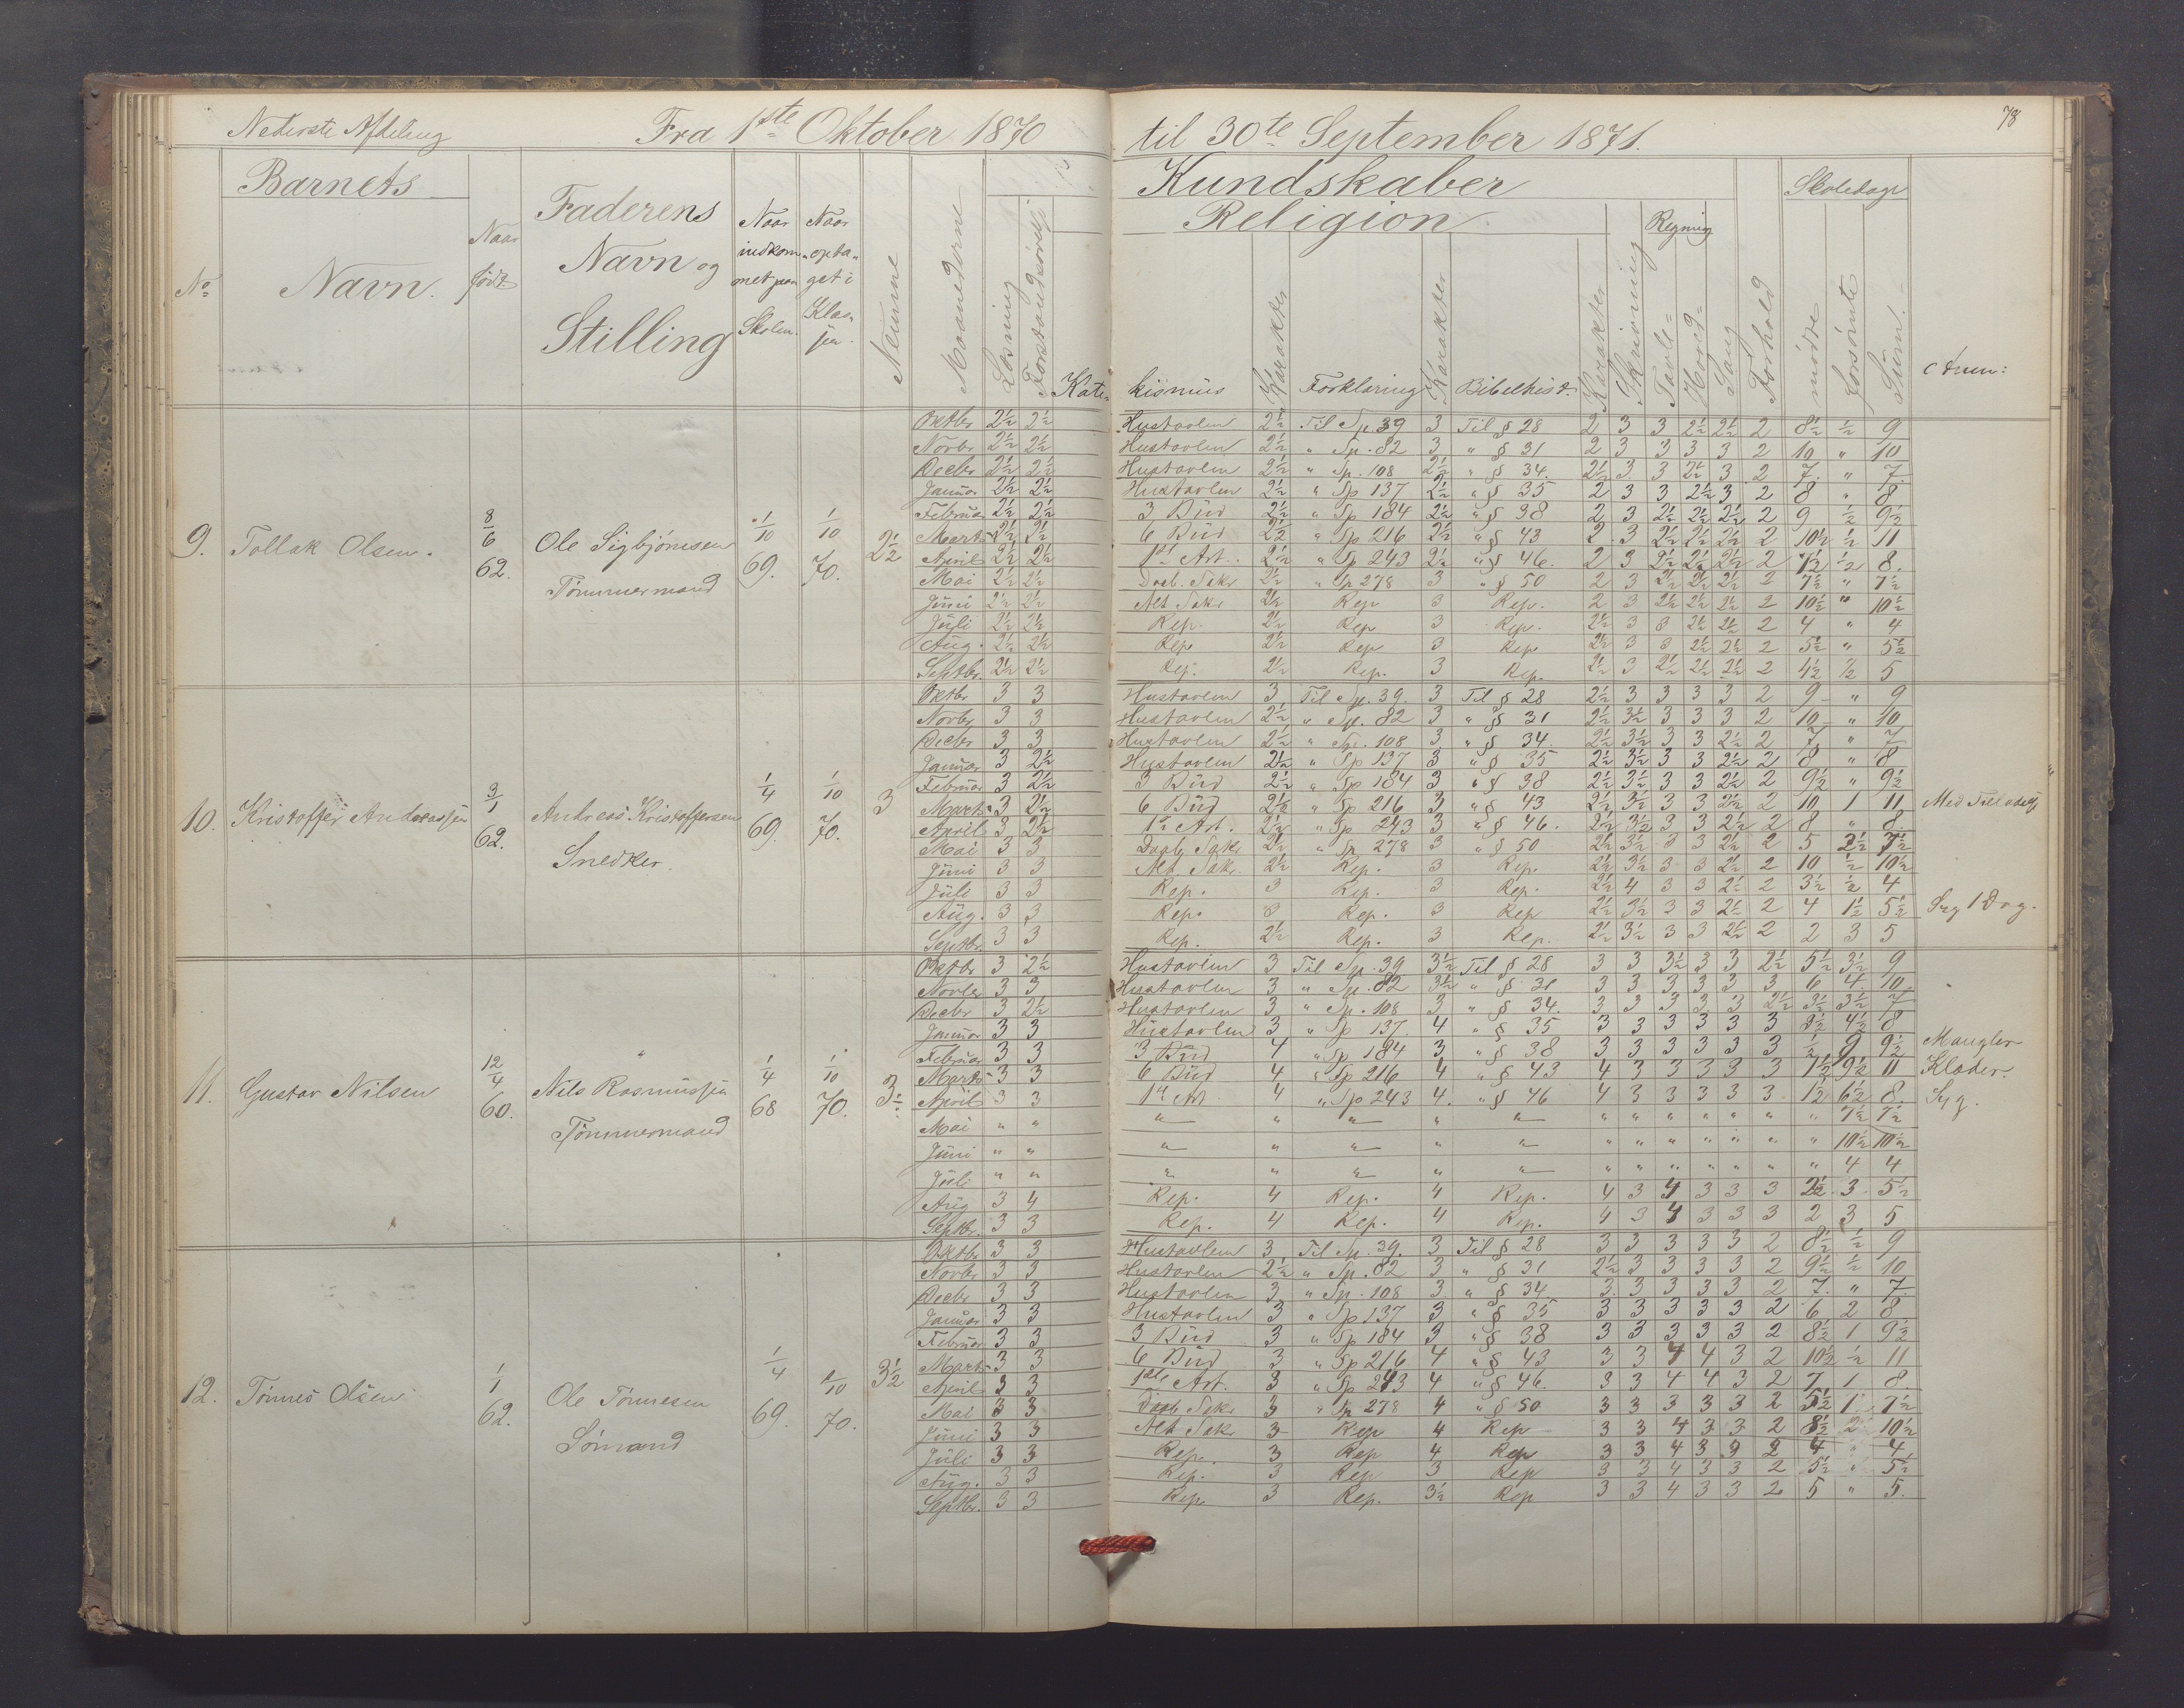 Nederste Afdeling Fra 1ste Oktober 1870 til 30te September 1871. 78
Barnets Kundskaber Skoledage
Religion Regning
No Navn. Naar født Faderens Navn og Stilling Naar indkommet paa Skolen. Naar optaget i Klassen. Numme Maanederne Læsning Forstandsøvelse Katekismus Karakter Forklaring Karakter Bibelhist. Karakter Skrivning Tavle= Hoved= Sang Forhold mødte forsømte Sum. Anm:
9. Tollak Olsen. 8/6 62. Ole Sigbjørnsen Tømmermand 1/10 69. 1/10 70. 2½
Oktbr 2½ 2½ Hustavlen 2½ Til Sp. 39 3 Til § 28 2 3 3 2½ 2½ 2 8½ ½ 9
Novbr 2½ 2½ Hustavlen 2½ " Sp. 82 3 " § 31 2 3 3 3 3 2 10 " 10
Decbr 2½ 2½ Hustavlen 2½ " Sp. 108 2½ " § 34. 2½ 3 3 2½ 3 2 7. " 7.
Januar 2½ 2½ Hustavlen 2½ " Sp 137 2½ " § 35 2 3 3 2½ 3 2 8 " 8
Februar 2½ 2½ 3 Bud 2½ " Sp 184 2½ " § 38 2 3 2½ 2½ 2½ 2 9 ½ 9½
Marts 2½ 2½ 6 Bud 2½ " Sp 216 2½ " § 43 2 3 2½ 2½ 2½ 2 10½ ½ 11
April 2½ 2½ 1ste Art. 2½ " Sp 243 2½ " § 46. 2 3 2½ 2½ 2½ 2 7½ ½ 8.
Mai 2½ 2½ Daab. Sakr 2½ " Sp 278 3 " § 50 2 3 2½ 2½ 2½ 2 7½ " 7½
Juni 2½ 2½ Alt. Sakr 2½ Rep 3 Rep. 2 3 2½ 2½ 2½ 2 10½ " 10½
Juli 2½ 2½ Rep. 2½ Rep 3 Rep. 2½ 3 3 2½ 2½ 2 4 " 4
Aug. 2½ 2½ Rep. 2½ Rep 3 Rep 2½ 3 3 2½ 2½ 2 5½ " 5½
Septbr. 2½ 2½ Rep. 2½ Rep. 3 Rep. 2½ 3 2½ 2½ 2½ 2 4½ ½ 5
10. Kristoffer Andreassen 3/1 62. Andreas Kristoffersen Snedker. 1/4 69. 1/10 70. 3
Oktbr 3 3 Hustavlen 3 Til Sp. 39. 3 Til § 28 2½ 3 3 3 3 2 9 " 9
Novbr 3 3 Hustavlen 2½ " Sp. 82 3 " § 31 2½ 3½ 3 3 3 2 10 " 10
Decbr 3 3 Hustavlen 2½ " Sp. 108 3 " § 34. 2½ 3½ 3 3 2½ 2 7 " 7
Januar 3 2½ Hustavlen 2½ " Sp 137 3 " § 35 2½ 3½ 3 3 2½ 2 8 " 8
Februar 3 2½ 3 Bud 2½ " Sp 184 3 " § 38 2½ 3½ 3 3 2½ 2 9½ " 9½
Marts 3 2½ 6 Bud 2½ " Sp 216 3 " § 43 2½ 3½ 3 3 2½ 2 10 1 11 Med Tilladelse
April 3 2½ 1ste Art. 2½ " Sp 243 3 " § 46. 2½ 3½ 3 3 2½ 2 8 " 8.
Mai 3 3 Daab. Sakr 2½ " Sp 278 3 " § 50 2½ 3½ 3 3 2½ 2 5 2½ 7½
Juni 3 3 Alt. Sakr. 2½ Rep. 3 Rep. 2½ 3½ 3 3 2½ 2 10 ½ 10½
Juli 3 3 Rep. 3 Rep. 3 Rep. 2½ 4 3 3 2½ 2 3½ ½ 4
Aug. 3 3 Rep. 3 Rep. 3 Rep 2½ 3½ 3 3 2½ 2 4 1½ 5½ Syg 1 Dag.
Septbr. 3 3 Rep. 2½ Rep. 3 Rep. 2½ 3½ 3 3 2½ 2 2 3 5
11. Gustav Nilsen 12/4 60. Nils Rasmussen Tømmermand 1/4 68 1/10 70. 3½
Oktbr 3 2½ Hustavlen 3 Til Sp. 39 3½ Til § 28 3 3 3½ 3 3 2½ 5½ 3½ 9
Novbr 3 3 Hustavlen 3 " Sp. 82 3½ " § 31 3 3 3 3 3 3 6 4 10
Decbr 3 2½ Hustavlen 3 " Sp. 108 3 " § 34. 3 3 3 3 3 2½ 3½ 3½ 7
Januar 3 3 Hustavlen 3 " Sp 137. 4 " § 35 3 3 3 3 3 3 3½ 4½ 8
Februar 3 3 3 Bud 4 " Sp 184 3 " § 38 3 3 3 3 3 3 ½ 9 9½ Mangler
Marts 3 3 6 Bud 4 " Sp 216 4 " § 43 4 3 3 3 3 3 1½ 9½ 11 Klæder.
April 3 3 1ste Art. 4 " Sp 243 4. " § 46 4 3 3 3 3 3 1½ 6½ 8. Syg.
Mai " " " " " " " " " " " " " " 7½ 7½
Juni " " " " " " " " " " " " " " 10½ 10½
Juli " " " " " " " " " " " " " " 4 4
Aug 3 4 Rep. 4 Rep. 4 Rep. 4 3 4 3 3 3 2½ 3 5½
Septbr. 3 3 Rep. 4 Rep. 4 Rep. 4 3 4 3 3 3 2 3 5
12. Tønnes Olsen 1/1 62. Ole Tønnesen Sømand 1/4 69. 1/10 70. 3½
Oktbr 3 3 Hustavlen 3 Til Sp. 39. 3 Til § 28 3 3 3 3 3 2 8½ ½ 9
Novbr 3 3 Hustavlen 2½ " Sp. 82 3 " § 31 2½ 3 3 3 3 2 9½ ½ 10
Decbr 3 3 Hustavlen 3 " Sp. 108 3. " § 34 3. 3 3 3 3 2 7. " 7.
Januar 3 3 Hustavlen 3 " Sp 137 3 " § 35 3 3 3 3 3 2 6 2 8
Februar 3 3 3 Bud 3 " Sp 184 3 " § 38 3 3 3 3 3 2 8½ 1 9½
Marts 3 3 6 Bud 3 " Sp 216 4 " § 43 3 3 4 4 3 2 10½ ½ 11
April 3 3 1ste Art. 3 " Sp 243 4 " § 46. 3 3 4 4 3 2 7 1 8
Mai 3 3 Daab Sakr 3 " Sp 278 4 " § 50 3 3 3 3 3 2 5½ 1 7½
Juni 3 3 Alt. Sakr 3 Rep 4 Rep 3 3 4 3 3 2 8½ 2 10½
Juli 3 3 Rep. 3 Rep 4 Rep 3 3 4 3 3 2 4 " 4
Aug. 3 3 Rep. 3 Rep 3 Rep 3 3 4 3 3 2 5½ " 5½
Septbr. 3 3 Rep. 3 Rep. 3½ Rep 3 3 4 3 3 2 5 " 5.